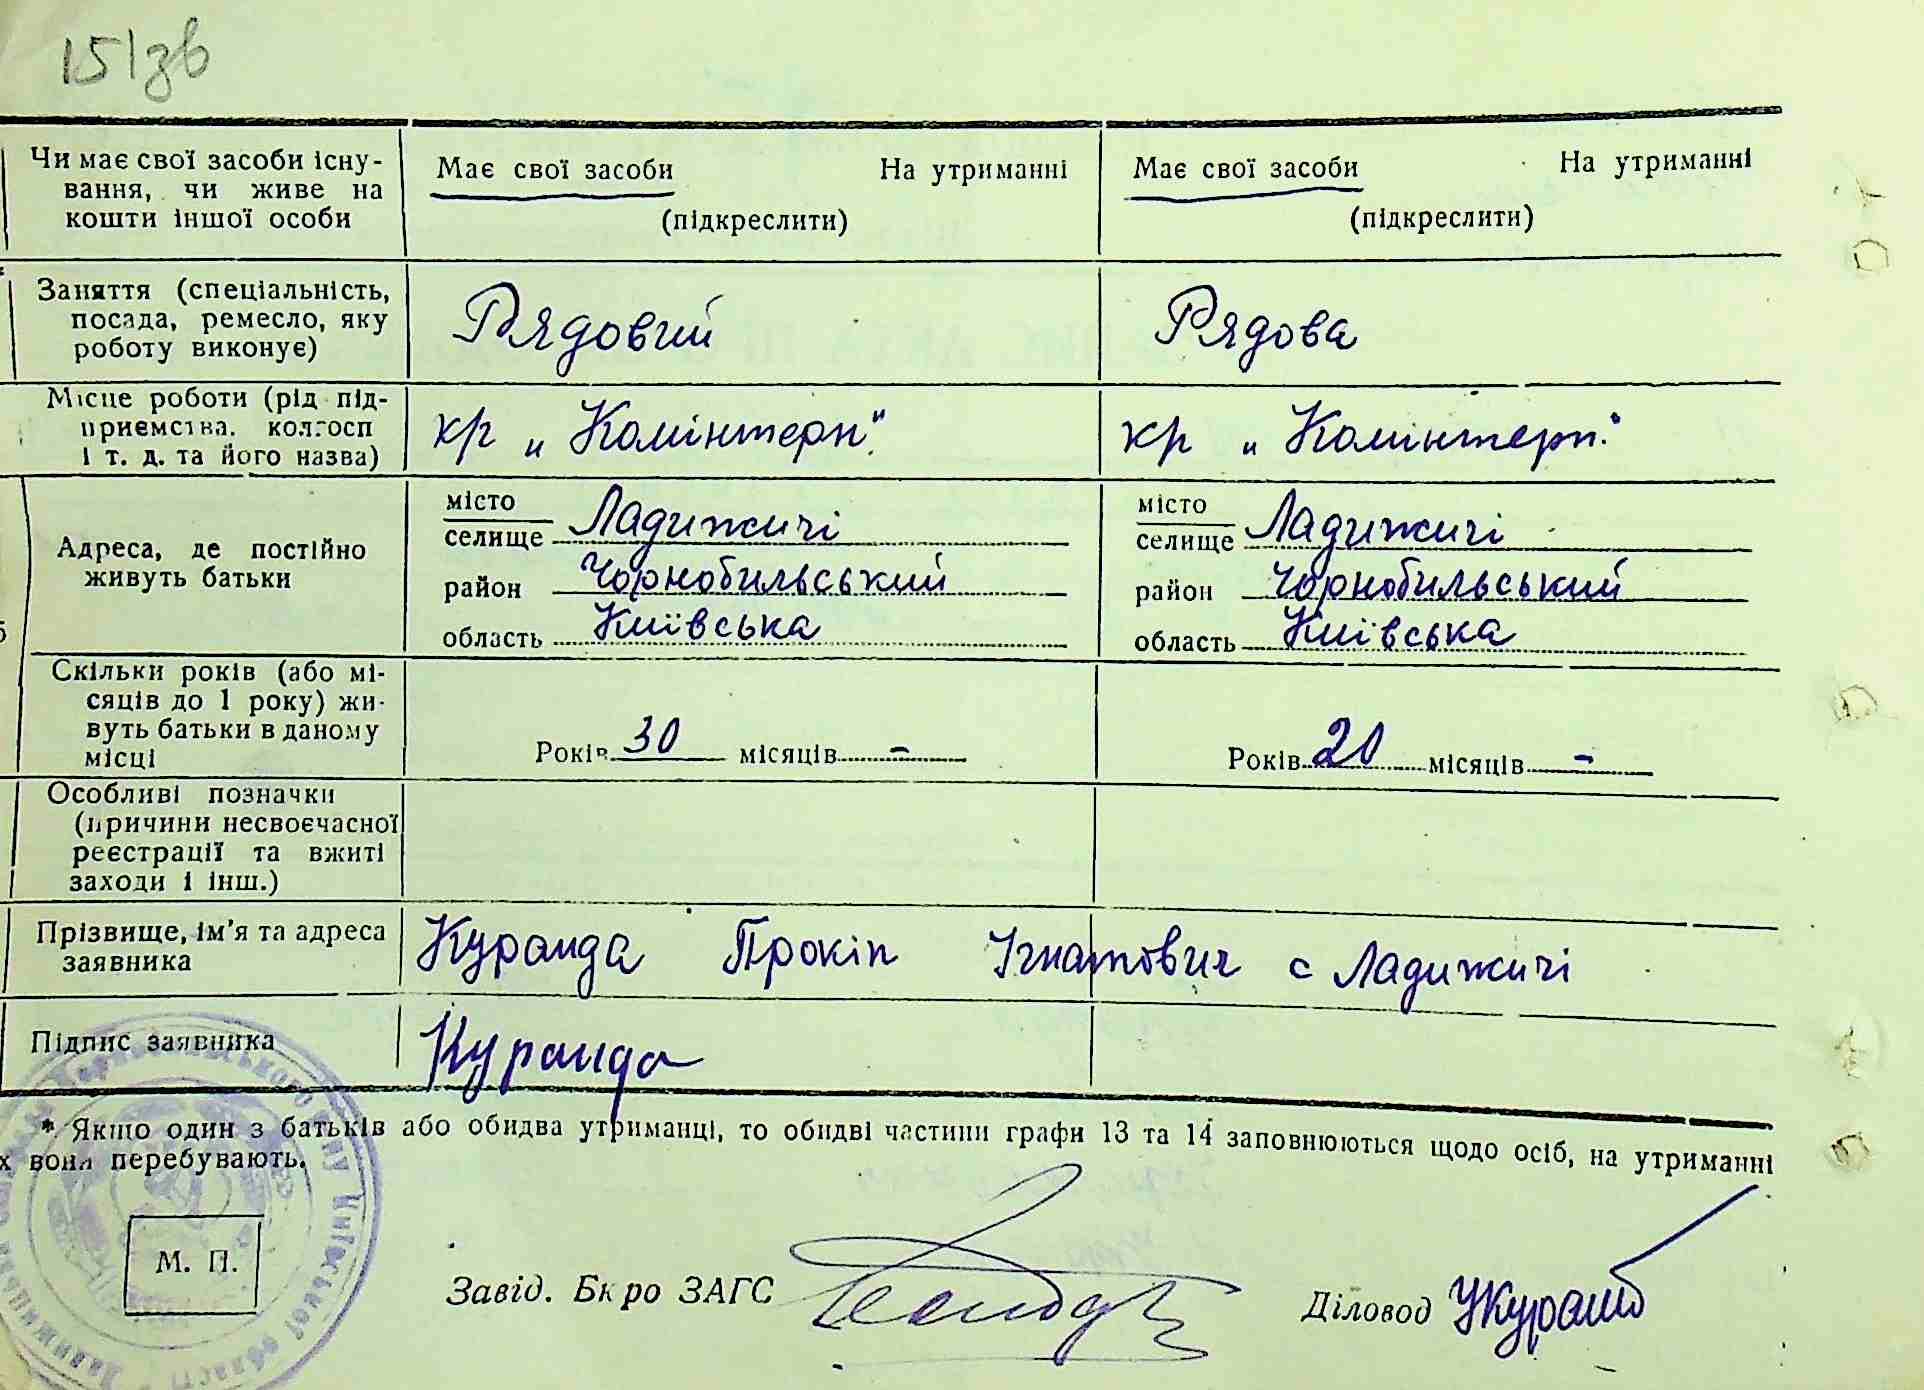 151зв
Чи має свої засоби існу-
вання, чи живе на
кошти іншої особи
Має свої засоби На утриманні
(підкреслити)
Має свої засоби На утриманні
(підкреслити)
Заняття (спеціальність,
посада, ремесло, яку
роботу виконує)
Рядовий
Рядова
Місце роботи (рід під-
приємства, колгосп
і т. д. та його назва)
к/г „Комінтерн"
к/г „Комінтерн"
Адреса, де постійно
живуть батьки
місто
селище Ладижичі
район Чорнобильський
область Київська
місто
селище Ладижичі
район Чорнобильський
область Київська
Скільки років (або мі-
сяців до 1 року) жи-
вуть батьки в даному
місці
Років 30 місяців -
Років 20 місяців -
Особливі позначки
(причини несвоєчасної
реєстрації та вжиті
заходи і інш.)
Прізвище, ім'я та адреса
заявника
Куранда Прокіп Ігнатович с Ладижичі
Підпис заявника
Куранда
* Якщо один з батьків або обидва утриманці, то обидві частини графи 13 та 14 заповнюються щодо осіб, на утриманні
х вони перебувають.
М. П.
Завід. Бюро ЗАГС
Діловод
Київської області